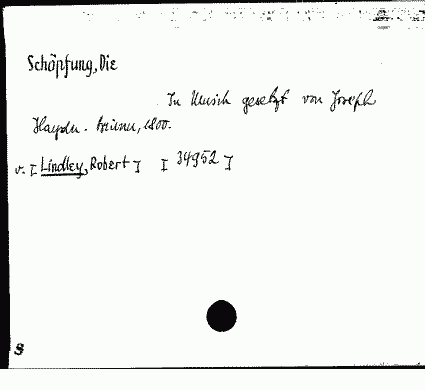 Schöpfung, Die
In Musik gesetzt von Joseph
Haydn. Brünn, 1800.
v. [Lindley, Robert] [34952]
8